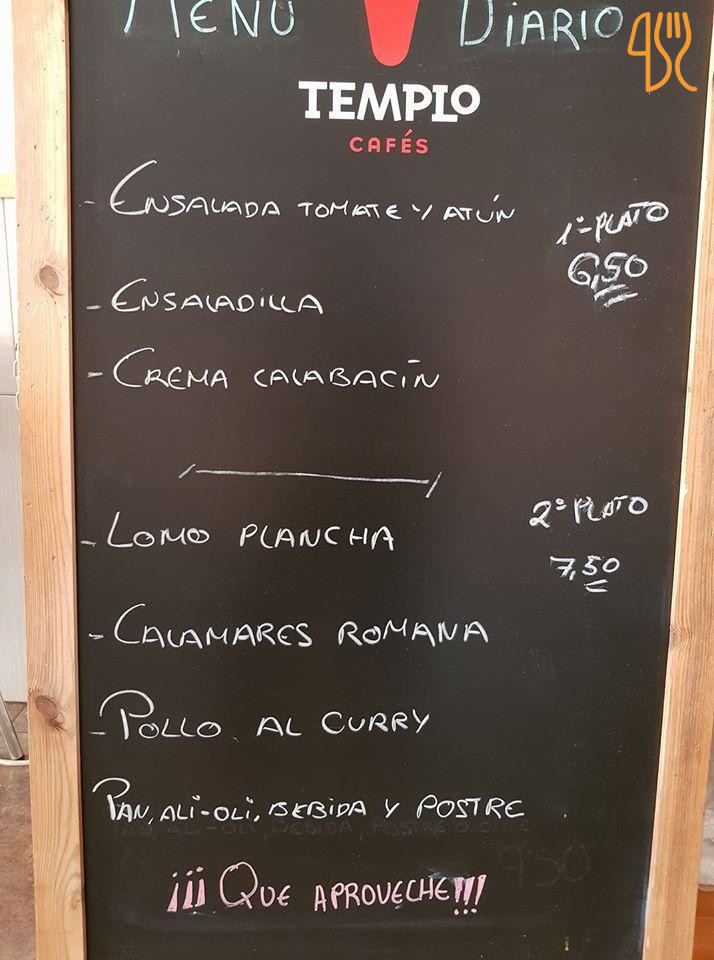 MENÚ DIARIO
TEMPLO
CAFÉS
- ENSALADA TOMATE Y ATÚN
1º PLATO
6,50
- ENSALADILLA
- CREMA CALABACÍN
- LOMO PLANCHA
2º PLATO
7,50
- CALAMARES ROMANA
- POLLO AL CURRY
PAN, ALI-OLI, BEBIDA Y POSTRE
9'50
¡¡¡ QUE APROVECHE!!!